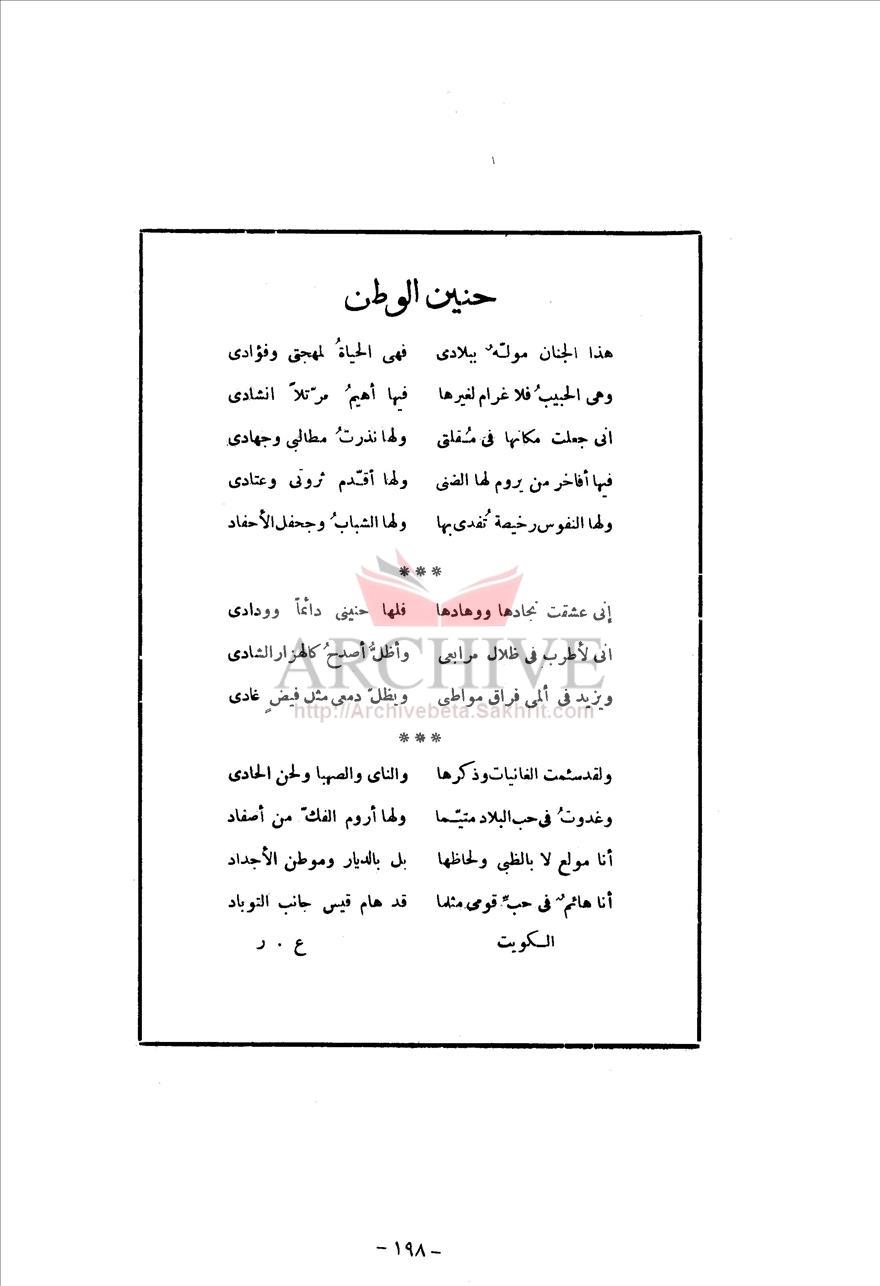 حنين الوطن
هذا الجنان مولّهٌ ببلادى فهى الحياةُ لمهجتى وفؤادى
وهى الحبيبُ فلا غرام لغيرها فيها أهيمُ مرتّلاً انشادى
انى جعلت مكانها فى مُقلتى ولها نذرتُ مطالبى وجهادى
فيها أفاخر من يروم لها الضنى ولها أقدّم ثروتى وعتادى
ولها النفوس رخيصة تُفدى بها ولها الشبابُ وجحفل الأحفاد
***
إنى عشقت نجادها ووهادها فلها حنينى دائماً وودادى
انى لأطرب فى ظلال مرابعى وأظلُّ أصدحُ كالهزار الشادى
ويزيد فى ألمى فراق مواطنى ويظلّ دمعى مثل فيضٍ غادى
***
ولقد سئمت الغانيات وذكرها والناى والصهبا ولحن الحادى
وغدوتُ فى حب البلاد متيّما ولها أروم الفكّ من أصفاد
أنا مولع لا بالظبى ولحاظها بل بالديار وموطن الأجداد
أنا هائمٌ فى حبِّ قومى مثلما قد هام قيس جانب التوباد
الكويت ع . ر
ARCHIVE
http://Archivebeta.Sakhrit.com
- ١٩٨ -